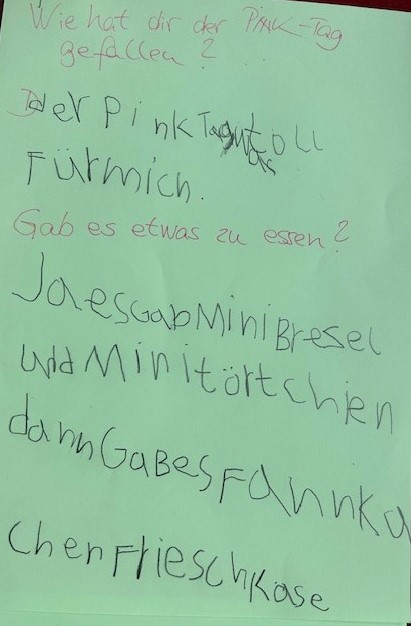 Wie hat dir der PINK-Tag
gefallen?
Der Pink Tag war toll
Fürmich.
Gab es etwas zu essen?
JaesGabMiniBresel
undMinitörtchien
dannGaBesFannku
chenFrieschkäse